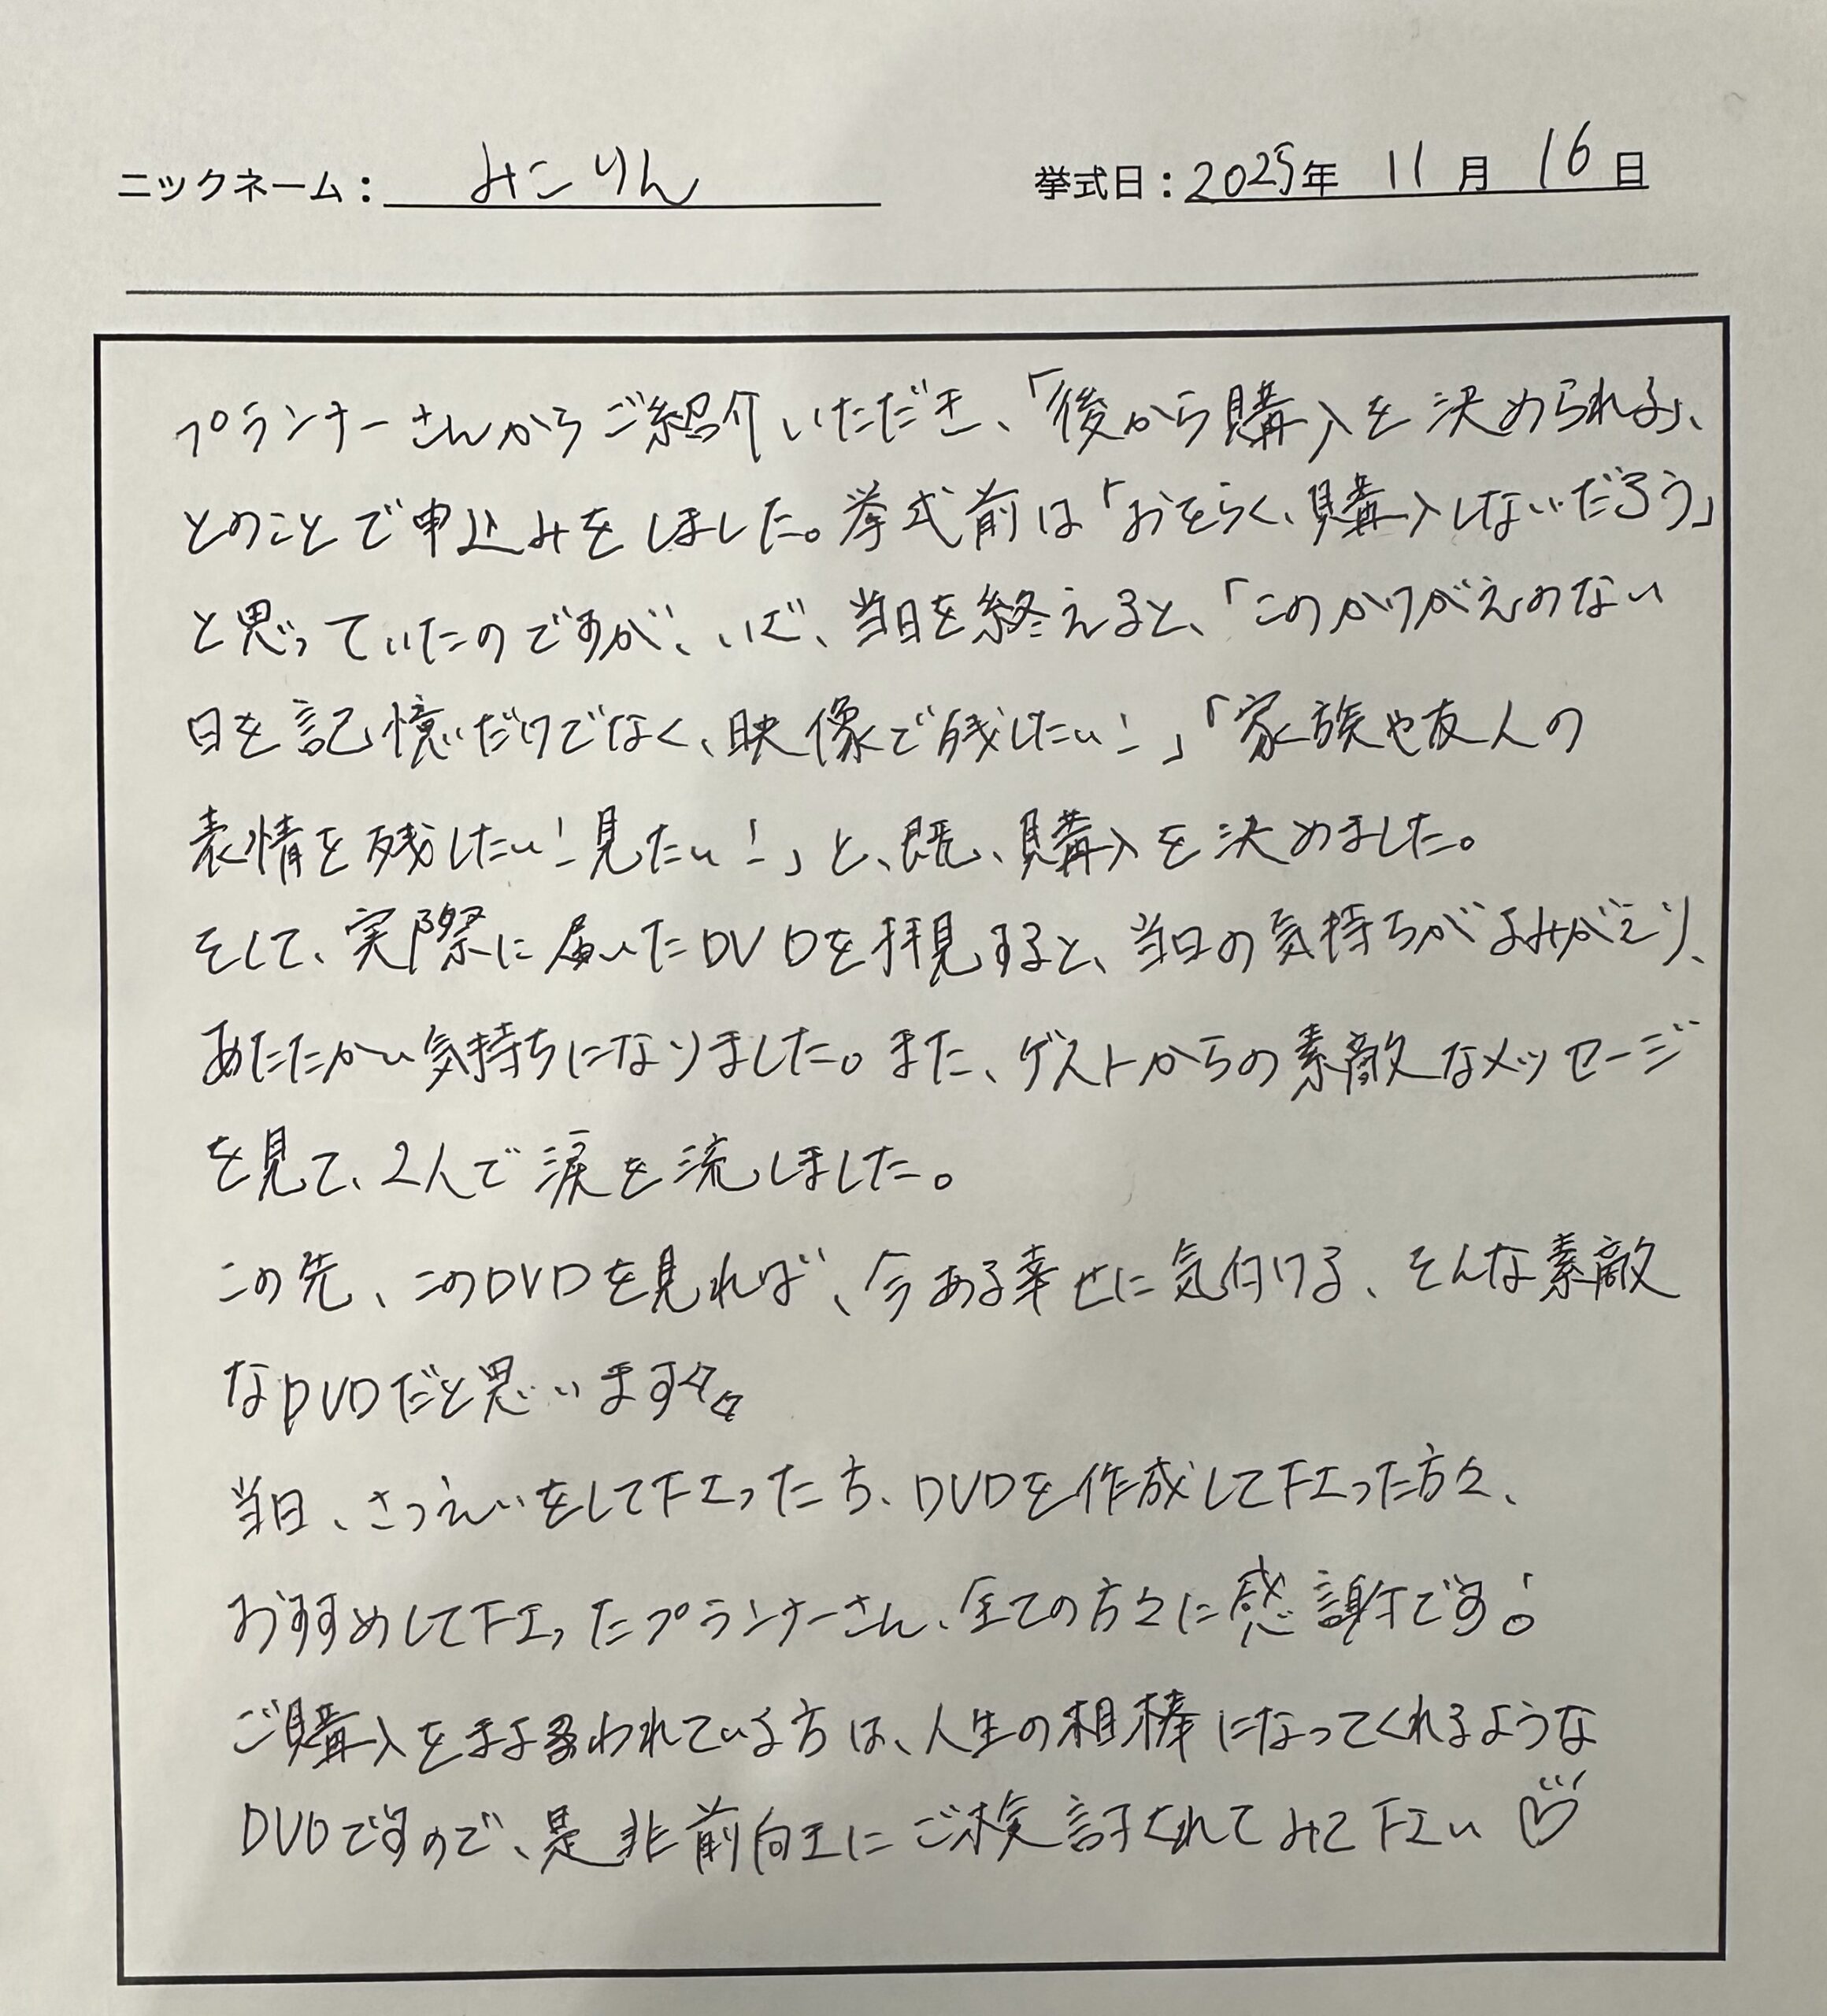 ニックネーム： みこりん 挙式日：2025年 11月 16日
プランナーさんからご紹介いただき、「後から購入を決められる」、
とのことで申込みをしました。挙式前は「おそらく、購入しないだろう」
と思っていたのですが、いざ、当日を終えると、「このかけがえのない
日を記憶だけでなく、映像で残したい！」「家族や友人の
表情を残したい！見たい！」と、即、購入を決めました。
そして、実際に届いたDVDを拝見すると、当日の気持ちがよみがえり、
あたたかい気持ちになりました。また、ゲストからの素敵なメッセージ
を見て、2人で涙を流しました。
この先、このDVDを見れば、今ある幸せに気付ける、そんな素敵
なDVDだと思います
当日、さつえいをして下さった方、DVDを作成して下さった方々、
おすすめして下さったプランナーさん、全ての方々に感謝です！
ご購入をまよわれている方は、人生の相棒になってくれるような
DVDですので、是非前向きにご検討されてみて下さい♡